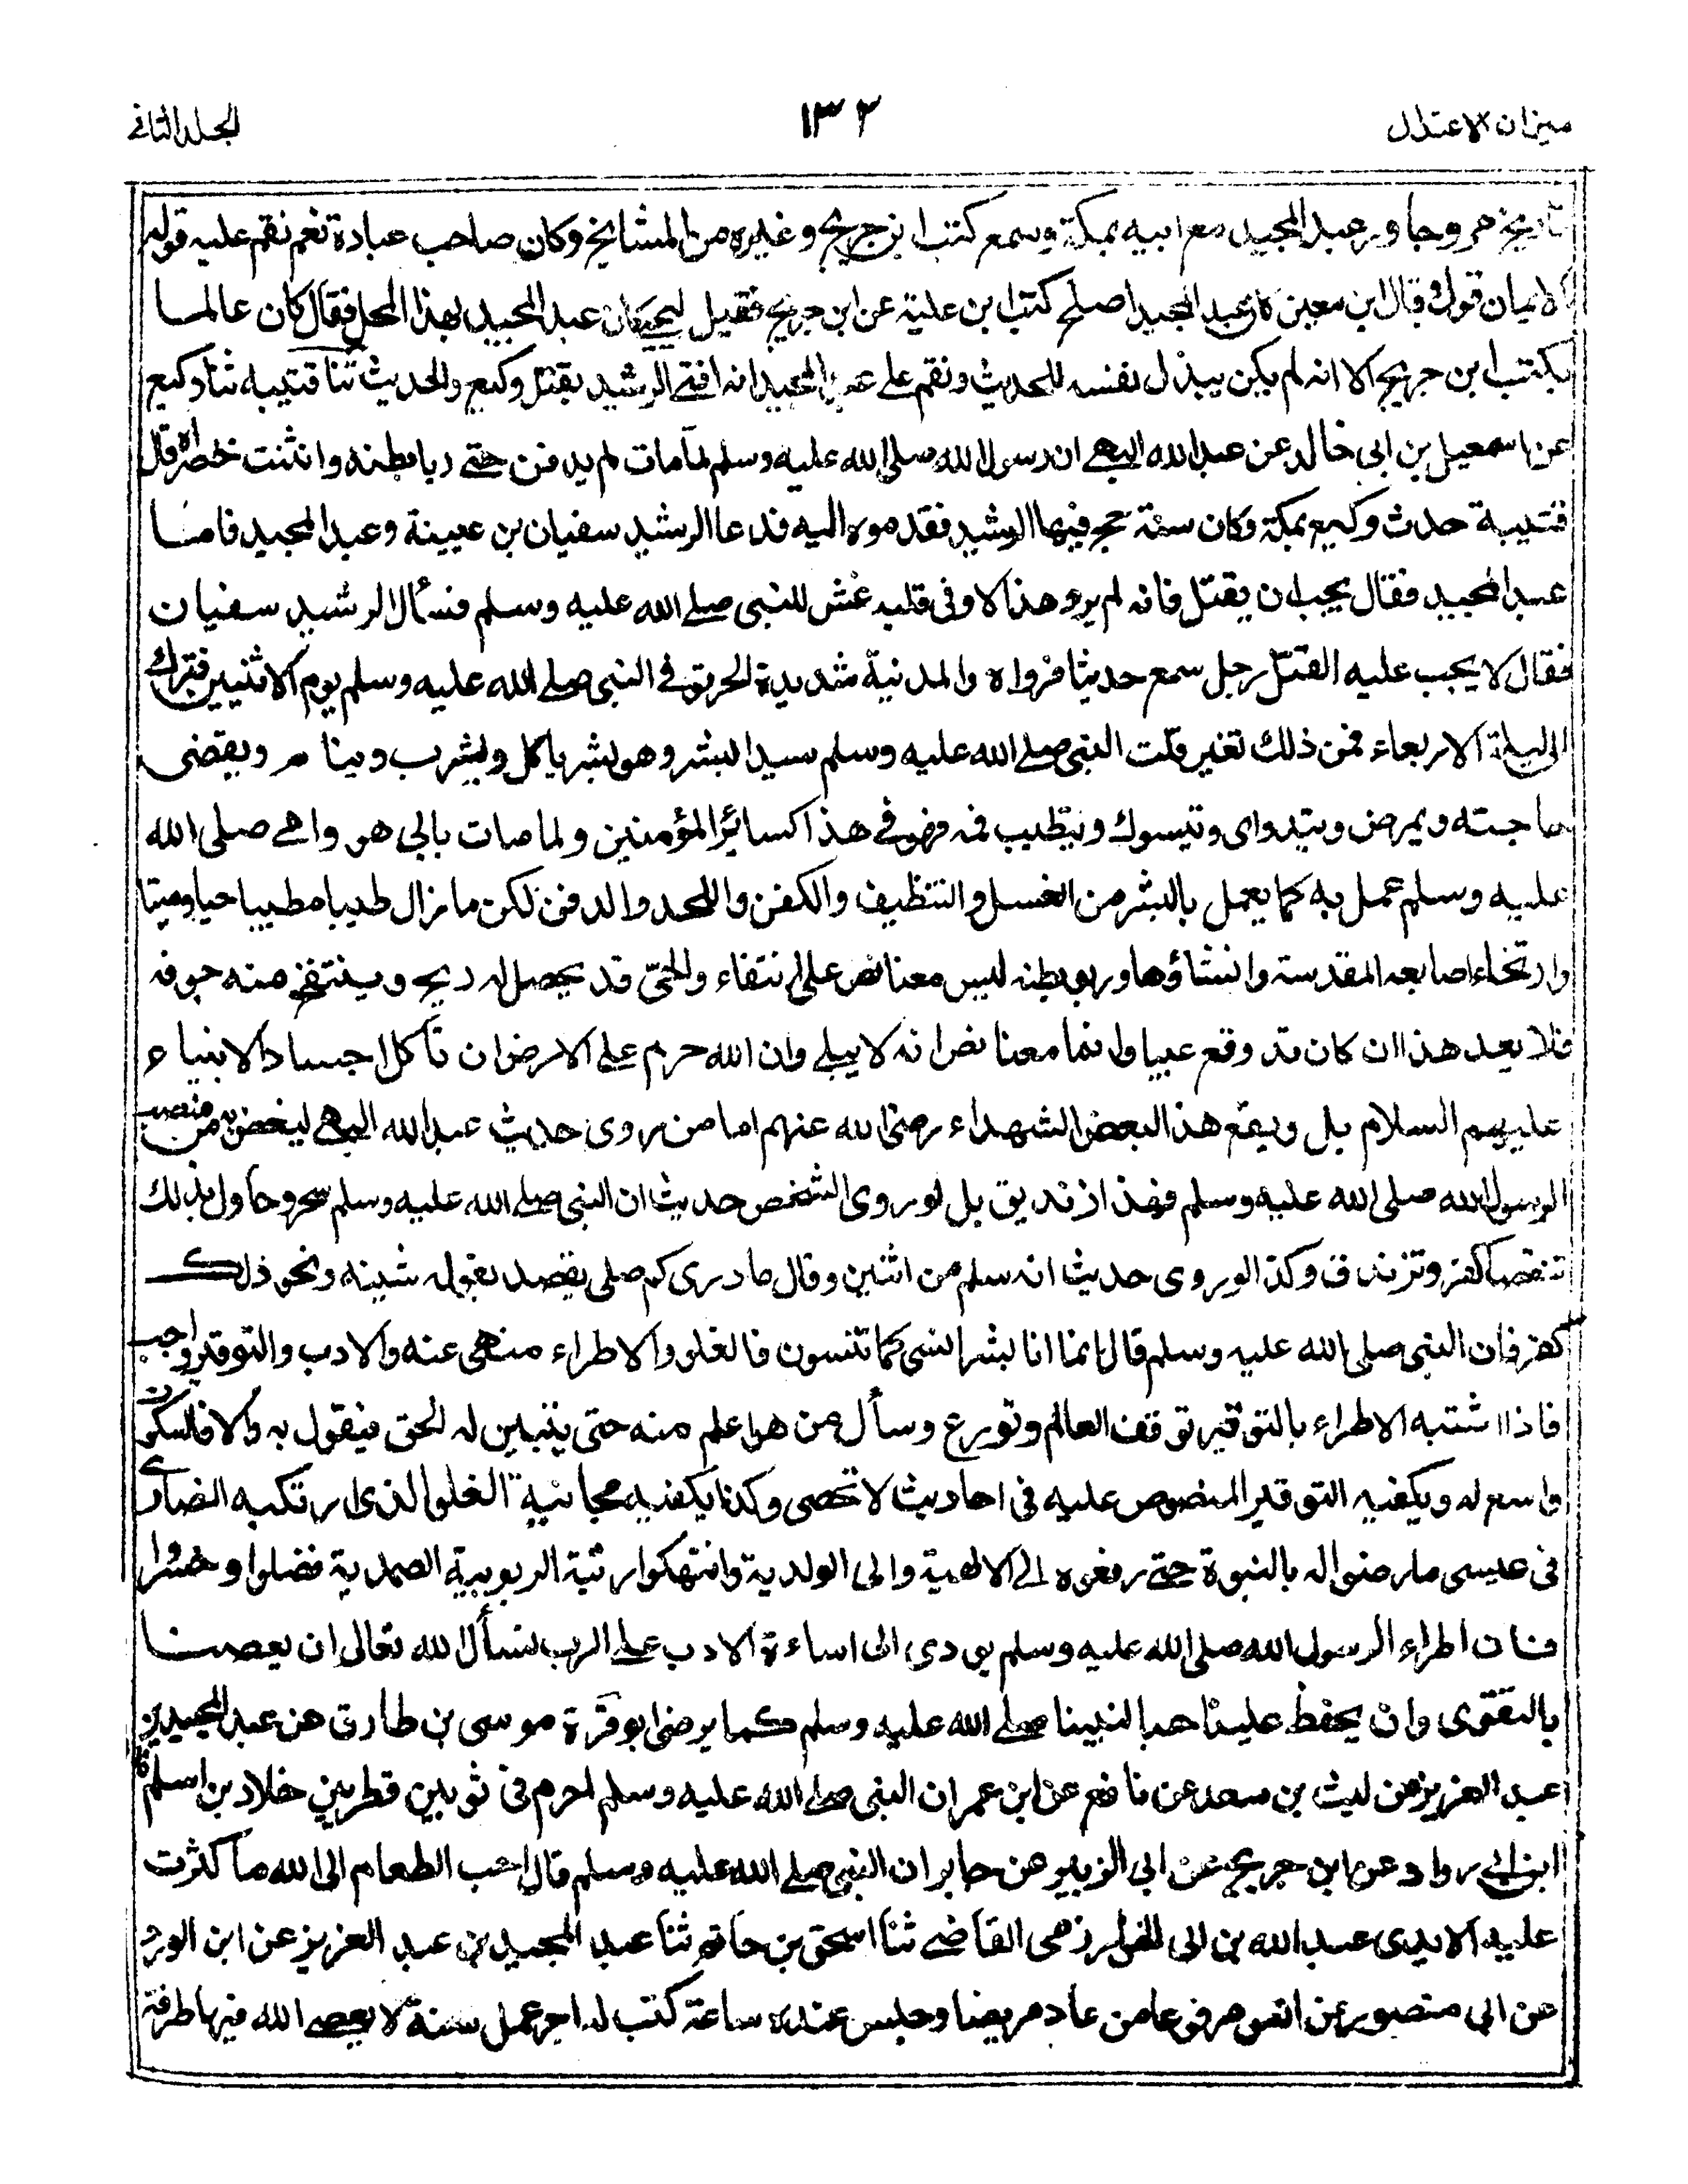 ميزان الاعتدال
١٣٢
الجلد الثاني
تاريخ هم وجاور عبد المجيد مع ابيه بمكة وسمع كتب ابن جريج وغيره من المشايخ وكان صاحب عبادة نعم نقم عليه قوله
الايمان قول وقال ابن معين كان عبد المجيد اصلح كتب ابن علية عن ابن جريج فقيل ليحيى كان عبد المجيد بهذا المحل فقال كان عالما
بكتب ابن جريج الا انه لم يكن يبذل نفسه للحديث ونقم على عبد المجيد انه افتى الرشيد بقتل وكيع والحديث ثنا قتيبه ثنا وكيع
عن اسمعيل بن ابى خالد عن عبد الله البهى ان رسول الله صلى الله عليه وسلم لما مات لم يدفن حتى ربا بطنه وانثنت خنصراه قال
قتيبة حدث وكيع بمكة وكان سنة حج فيها الرشيد فقدموه اليه فدعا الرشيد سفيان بن عيينة وعبد المجيد فاما
عبد المجيد فقال يجب ان يقتل فانه لم يرو هذا الا وفى قلبه غش للنبى صلى الله عليه وسلم فسأل الرشيد سفيان
فقال لا يجب عليه القتل رجل سمع حديثا فرواه والمدنية شديدة الحر توفى النبى صلى الله عليه وسلم يوم الاثنين فترك
الى ليلة الاربعاء فمن ذلك تغير قلت النبى صلى الله عليه وسلم سيد البشر وهو بشر يا كل ويشرب وينام ويقضى
حاجته ويمرض ويتداوى ويتسوك ويتطيب فمه فهو فى هذا كسائر المؤمنين ولما مات بابى هو وامى صلى الله
عليه وسلم عمل به كما يعمل بالبشر من الغسل والتنظيف والكفن واللحد والدفن لكن ما زال طيبا مطيبا حيا وميتا
وارتخاء اصابعه المقدسة وانثناؤها وربو بطنه ليس معنا نص على انتفاء والحى قد يحصل له ريح وينتفخ منه جوفه
فلا يعد هذا ان كان قد وقع عيبا وانما معنا نص انه لا يبلى وان الله حرم على الارض ان تأكل اجساد الانبياء
عليهم السلام بل ويقع هذا البعض الشهداء رضى الله عنهم اما من روى حديث عبد الله البهى ليغض به من منصب
الرسول الله صلى الله عليه وسلم فهذا زنديق بل لو روى الشخص حديث ان النبى صلى الله عليه وسلم سحر وحاول بذلك
تنقصا كفر وتزندق وكذا لو روى حديث انه سلم من اثنين وقال ما درى كم صلى يقصد بقوله شينه ونحو ذلك
كفر فان النبى صلى الله عليه وسلم قال انما انا بشر انسى كما تنسون فالغلو والاطراء منهى عنه والادب والتوقير واجب
فاذا اشتبه الاطراء بالتوقير توقف العالم وتورع وسأل من هو اعلم منه حتى يتبين له الحق فيقول به والا فالسكوت
واسع له ويكفيه التوقير المنصوص عليه فى احاديث لا تحصى وكذا يكفيه مجانبة الغلو الذى ارتكبه النصارى
فى عيسى ما رضوا له بالنبوة حتى رفعوه الى الالهية والى الولدية وانتهكوا رتبة الربوبية الصمدية فضلوا وخسروا
فان اطراء الرسول الله صلى الله عليه وسلم يودى الى اساءة الادب على الرب نسأل الله تعالى ان يعصمنا
بالتقوى وان يحفظ علينا حب النبينا صلى الله عليه وسلم كما يرضى ابو قرة موسى بن طارق عن عبد المجيد بن
عبد العزيز عن ليث بن سعد عن نافع عن ابن عمر ان النبى صلى الله عليه وسلم احرم فى ثوبين قطريين خلاد بن اسلم ثنا
ابن ابى رواد عن ابن جريج عن ابى الزبير عن جابر ان النبى صلى الله عليه وسلم قال احب الطعام الى الله ما كثرت
عليه الايدى عبد الله بن ابى الخوارزمى القاضى ثنا اسحق بن حاتم ثنا عبد المجيد بن عبد العزيز عن ابن الورد
عن ابى منصور عن انس مرفوعا من عاد مريضا وجلس عنده ساعة كتب له اجر عمل سنة لا يعصى الله فيها طرفة